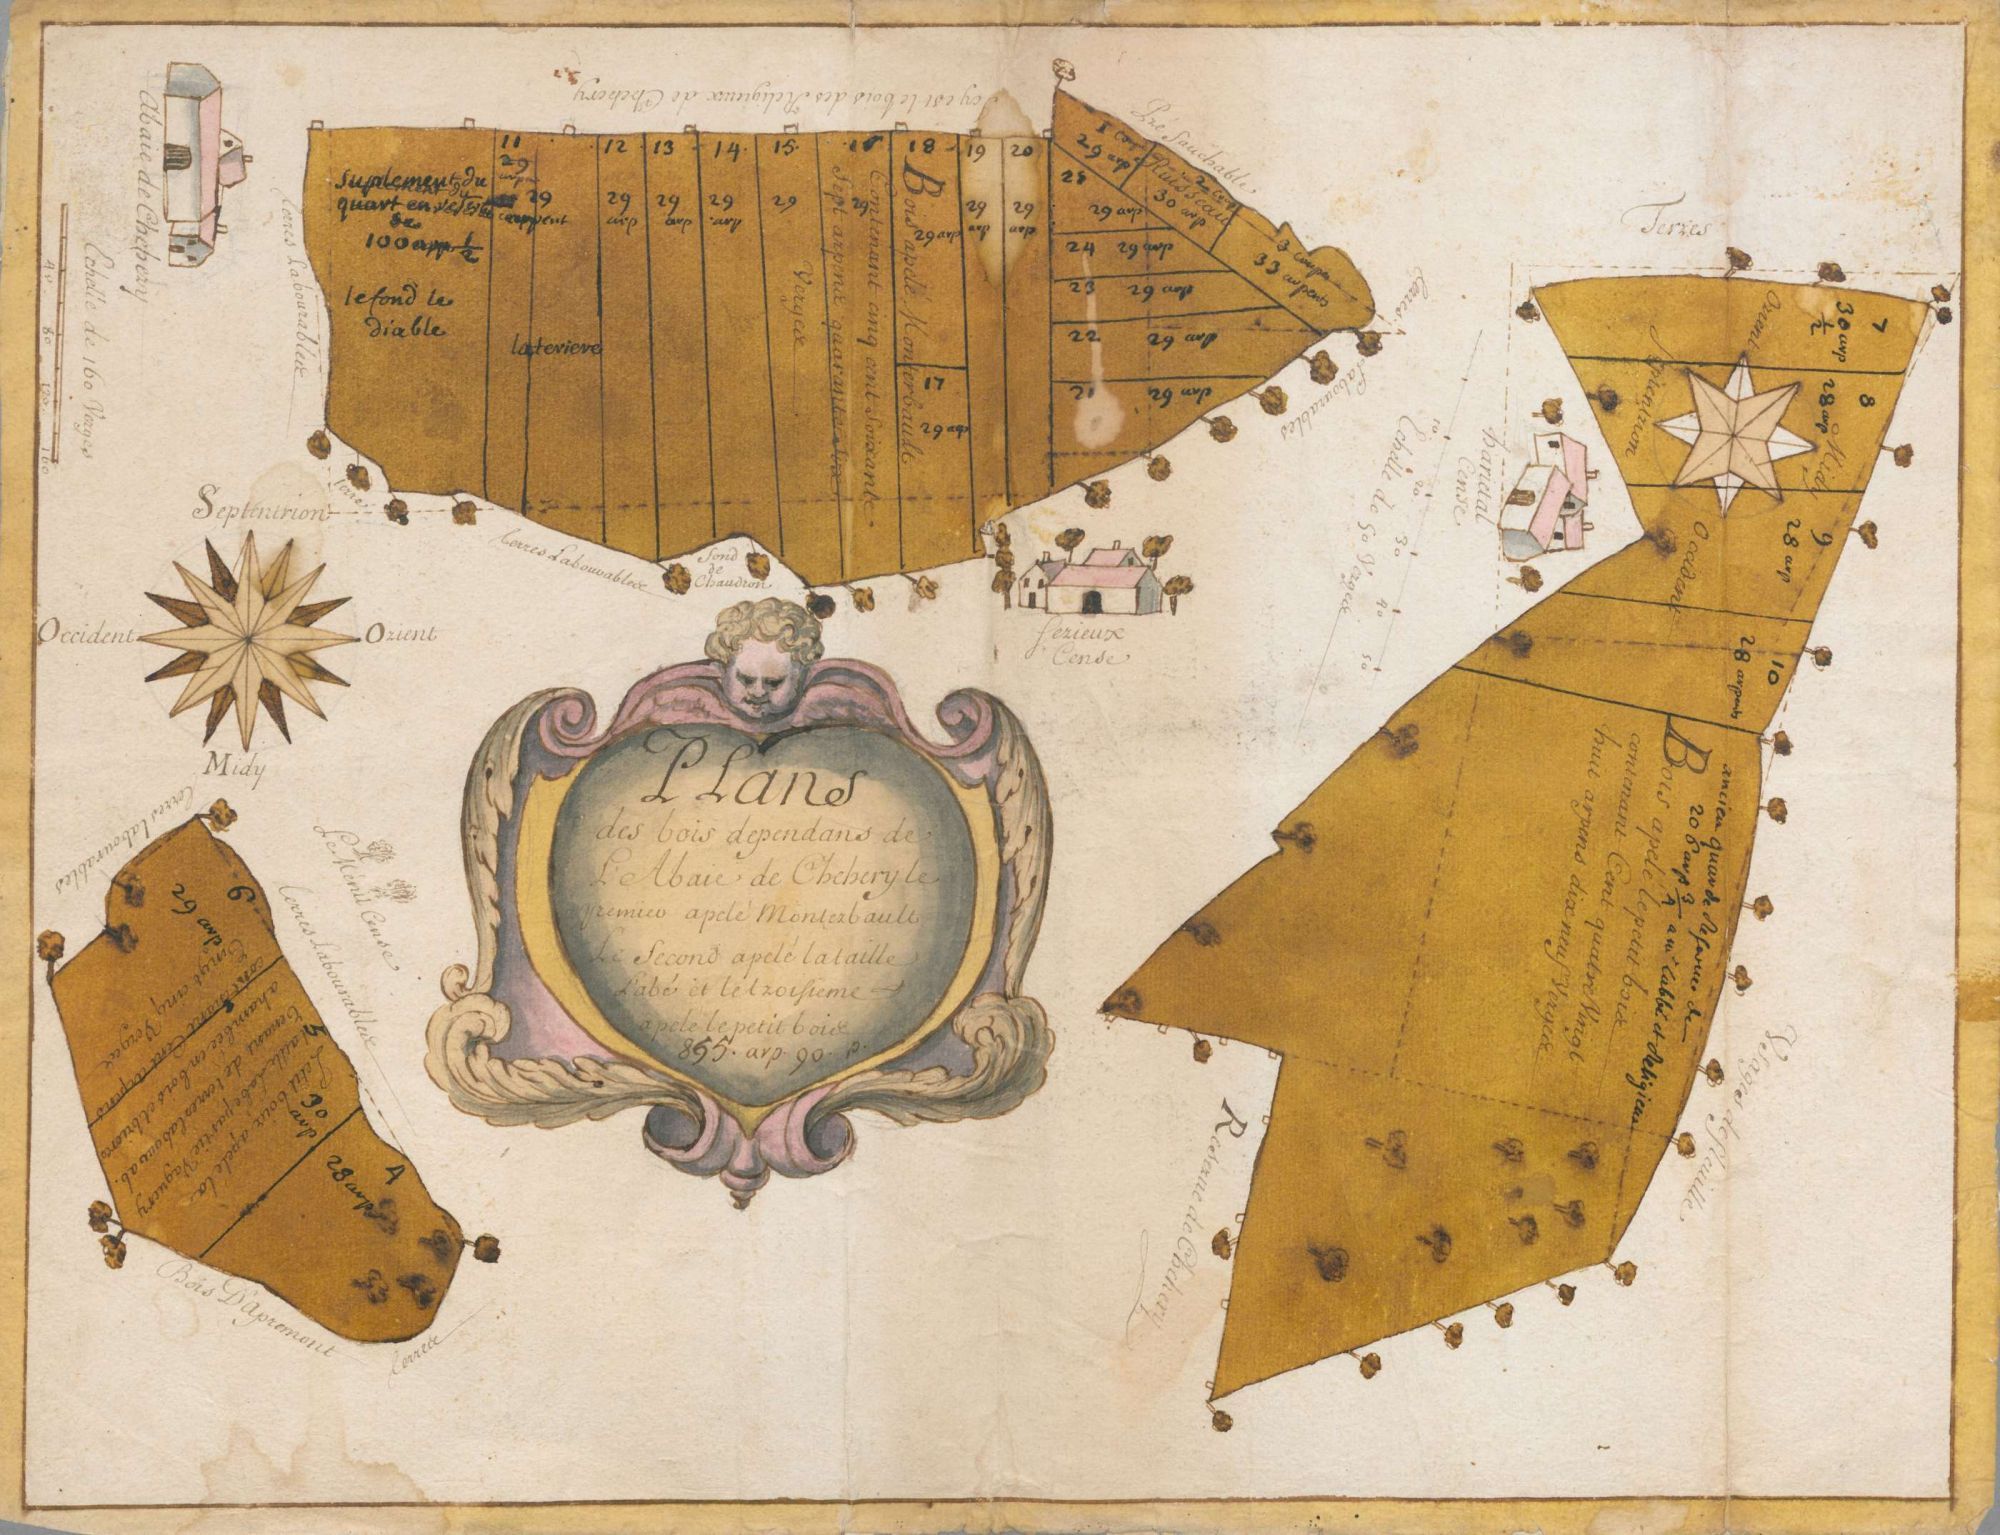 Abaie de Chehery
Echelle de 160 Verges
40
80
120
160
Icy est le bois des Religieux de Chehery
Terres Labourables
Suplement du
quart en reserve
de
100 arp 1/2
le fond le
diable
11
29
arpent
29
arpent
la teviere
12
29
arp
13
29
arp
14
29
arp.
15
29
Verges
Sept arpens quarante six
29
Contenant cinq cent soixante
Bois apelé Monterbault
18
29 arp
17
29 arp
19
29
arp
20
29
arp
1 coupe
29 arp
Ruisseau
30 arp
3 coupe
33 arpens
Pré Fauchable
25
29 arp
24
29 arp
23
29 arp
22
29 arp
21
29 arp
Terres
Labourables
Terres
Terres Labourables
Fond
de
Chaudron
Septentrion
Occident
Orient
Midy
Fezieux
Cense
Echelle de 50 Verges
10
20
30
40
50
Cense
Terres
Orient
Septentrion
Midy
Occident
7
30 arp
1/2
8
28 arp
9
28 arp
10
28 arpents
ancien quart de Reserve de
206 arp 3/4 a mr l'abbé et Religieux
Bois apelé le petit bois
contenant Cent quatre Vingt
huit arpens dix neuf Verges
Usages de Fleville
Reserve de Chehery
PLans
des bois dependans de
L'Abaie de Chehery le
premier apelé Monterbault
Le Second apelé la taille
Labé et le troisieme
apelé le petit bois
855. arp. 90. p.
Terres labourables
Le Menil Cense
Terres Labourables
6
29 arp
Vingt cinq Verges
contenant Cent arpens
chambée en bois et bruere
tenans de terres labourab.
taille Labé partie Vaguery
Petit bois apelé la
30
arp
4
28 arp
Bois D'apremont
Terres